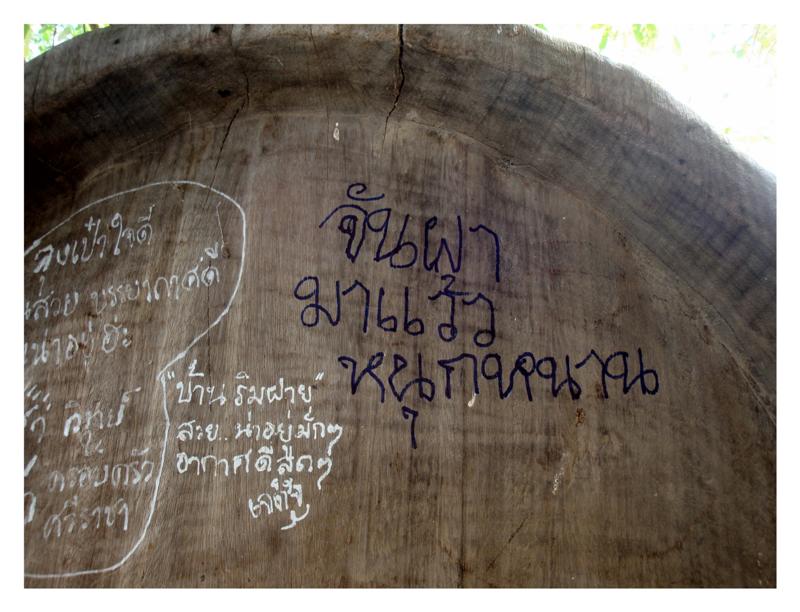 จันผา
มาแร้ว
หนุกหนาน
ลุงเป๋าใจดี
บรรยากาศดี
น่าอยู่ฮ่ะ
ครอบครัว
ศรีราชา
"บ้านริมฝาย"
สวย..น่าอยู่มั๊กๆ
อากาศดีสุดๆ